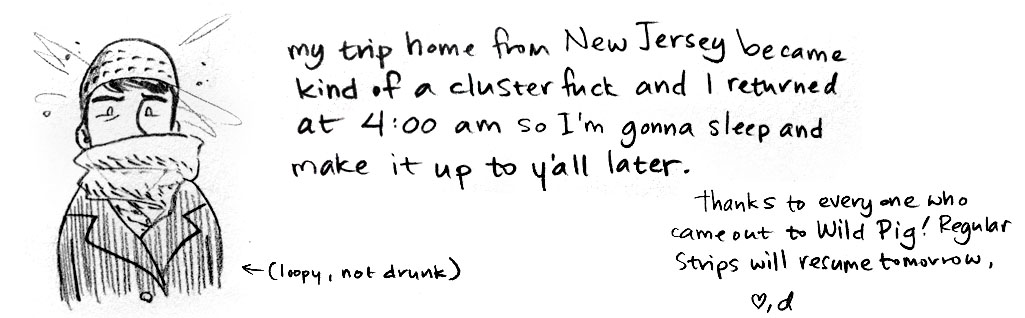 my trip home from New Jersey became
kind of a cluster fuck and I returned
at 4:00 am so I'm gonna sleep and
make it up to y'all later.
Thanks to everyone who
came out to Wild Pig! Regular
Strips will resume tomorrow,
♡, d
←(loopy, not drunk)